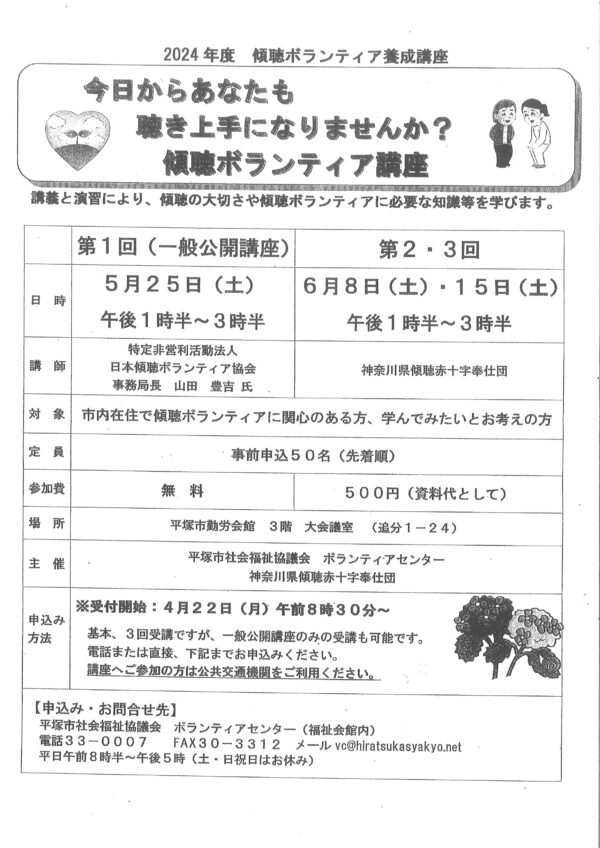 2024年度　傾聴ボランティア養成講座
今日からあなたも
聴き上手になりませんか？
傾聴ボランティア講座
講義と演習により、傾聴の大切さや傾聴ボランティアに必要な知識等を学びます。
第１回（一般公開講座）　第２・３回
日　時　５月２５日（土）　６月８日（土）・１５日（土）
午後１時半～３時半　午後１時半～３時半
講　師　特定非営利活動法人
日本傾聴ボランティア協会　神奈川県傾聴赤十字奉仕団
事務局長　山田　豊吉 氏
対　象　市内在住で傾聴ボランティアに関心のある方、学んでみたいとお考えの方
定　員　事前申込５０名（先着順）
参加費　無　料　５００円（資料代として）
場　所　平塚市勤労会館　３階　大会議室　（追分１－２４）
主　催　平塚市社会福祉協議会　ボランティアセンター
神奈川県傾聴赤十字奉仕団
申込み
方法
※受付開始：４月２２日（月）午前８時３０分～
基本、３回受講ですが、一般公開講座のみの受講も可能です。
電話または直接、下記までお申込みください。
講座へご参加の方は公共交通機関をご利用ください。
【申込み・お問合せ先】
平塚市社会福祉協議会　ボランティアセンター（福祉会館内）
電話３３－０００７　FAX３０－３３１２　メール vc@hiratsukasyakyo.net
平日午前８時半～午後５時（土・日祝日はお休み）